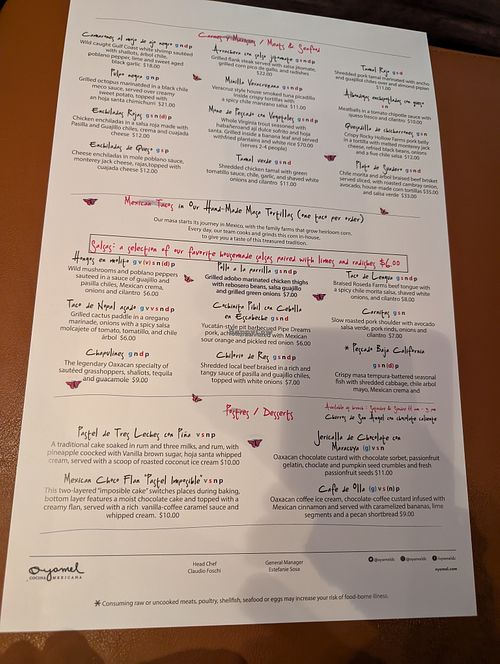 Carnes y Mariscos / Meats & Seafood
Camarones al mojo de ajo negro g s n d p
Wild caught Gulf Coast white shrimp sautéed
with shallots, árbol chile,
poblano pepper, lime and sweet aged
black garlic $18.00
Pulpo negro g n p
Grilled octopus marinated in a black chile
meco sauce, served over creamy
sweet potato, topped with
an hoja santa chimichurri $21.00
Enchiladas Rojas g s n (d) p
Chicken enchiladas in a salsa roja made with
Pasilla and Guajillo chiles, crema and cuajada
cheese $12.00
Enchiladas de Queso g s p
Cheese enchiladas in mole poblano sauce,
monterey jack cheese, rajas,topped with
cuajada cheese $12.00
Arrachera con salsa jitomate g s n d p
Grilled flank steak served with salsa jitomate,
grilled corn pico de gallo, and radishes
$22.00
Minilla Veracruzana g s n d p
Veracruz style home smoked tuna picadillo
inside crispy tortillas with
a spicy chile manzano salsa $11.00
Mono de Pescado con Vegetales g s n d p
Whole Virginia trout seasoned with
habañeroand ají dulce sofrito and hoja
santa. Grilled inside a banana leaf and served
withfried plantain and white rice $70.00
(serves 2-4 people)
Tamal verde g s n d
Shredded chicken tamal with green
tomatillo sauce, chile, garlic, and shaved white
onions and cilantro $11.00
Tamal Rojo g s d
Shredded pork tamal marinated with ancho
and guajillo chiles over and almond pipian
$11.00
Albondigas enchipotladas con queso
s n
Meatballs in a tomato chipotle sauce with
queso fresco and cilantro $10.00
Quesadilla de chicharrones g s n
Crispy Rocky Hollow Farms pork belly
in a tortilla with melted monterey jack
cheese, refried black beans, onions
and a five chile salsa $12.00
Plato de Suadero g s n d p
Chile morita and árbol braised beef brisket
served sliced, with roasted cambray onion,
avocado, house made corn tortillas $35.00
and salsa verde $33.00
Mexican Tacos in Our Hand-Made Masa Tortillas (one taco per order)
Our masa starts its journey in Mexico, with the family farms that grow heirloom corn.
Every day, our team cooks and grinds this corn in-house,
to give you a taste of this treasured tradition.
Salsas: a selection of our favorite housemade salsas paired with limes and radishes $6.00
Hongos en molito g v (v) s n (d) p
Wild mushrooms and poblano peppers
sauteed in a sauce of guajillo and
pasilla chiles, Mexican crema,
onions and cilantro $6.00
Taco de Nopal asado g v v s n d p
Grilled cactus paddle in a oregano
marinade, onions with a spicy salsa
molcajete of tomato, tomatillo, and chile
árbol $6.00
Chapulines g n d p
The legendary Oaxacan specialty of
sautéed grasshoppers, shallots, tequila
and guacamole $9.00
Pollo a la parrilla g s n d p
Grilled adobo marinated chicken thighs
with rebosero beans, salsa guajillo
and grilled green onions $7.00
Cochinita Pibil con Cebolla
en Escabeche g s n d
Yucatán-style pit barbecued Pipe Dreams
pork, achiote marinated with Mexican
sour orange and pickled red onion $6.00
Chilorio de Res g s n d p
Shredded local beef braised in a rich and
tangy sauce of pasilla and guajillo chiles,
topped with white onions $7.00
Taco de Lengua g s n d p
Braised Roseda Farms beef tongue with
a spicy chile morita salsa, shaved white
onions, and cilantro $8.00
Carnitas g s n
Slow roasted pork shoulder with avocado
salsa verde, pork rinds, onions and
cilantro $7.00
* Pescado Baja California
g s n (d) p
Crispy masa tempura-battered seasonal
fish with shredded cabbage, chile arbol
mayo, Mexican crema and
Postres / Desserts
Churros de San Angel con chocolate caliente
Pastel de Tres Leches con Piña v s n p
A traditional cake soaked in rum and three milks, and rum, with
pineapple coocked with Vanilla brown sugar, hoja santa whipped
cream, served with a scoop of roasted coconut ice cream $10.00
Mexican Choco Flan "Pastel Imposible" v s n p
This two-layered "imposible cake" switches places during baking,
bottom layer features a moist chocolate cake and topped with a
creamy flan, served with a rich vanilla-coffee caramel sauce and
whipped cream. $10.00
Jericalla de Chocolate con
Maracuya (g) v s n p
Oaxacan chocolate custard with chocolate sorbet, passionfruit
gelatin, choclate and pumpkin seed crumbles and fresh
passionfruit seeds $11.00
Café de Olla (g) v s (n) p
Oaxacan coffee ice cream, chocolate-coffee custard infused with
Mexican cinnamon and served with caramelized bananas, lime
segments and a pecan shortbread $9.00
oyamel
COCINA MEXICANA
Head Chef
Claudio Foschi
General Manager
Estefanie Sosa
@oyameldc
oyameldc
@oyameldc
oyamel.com
* Consuming raw or uncooked meats, poultry, shellfish, seafood or eggs may increase your risk of food-borne illness.